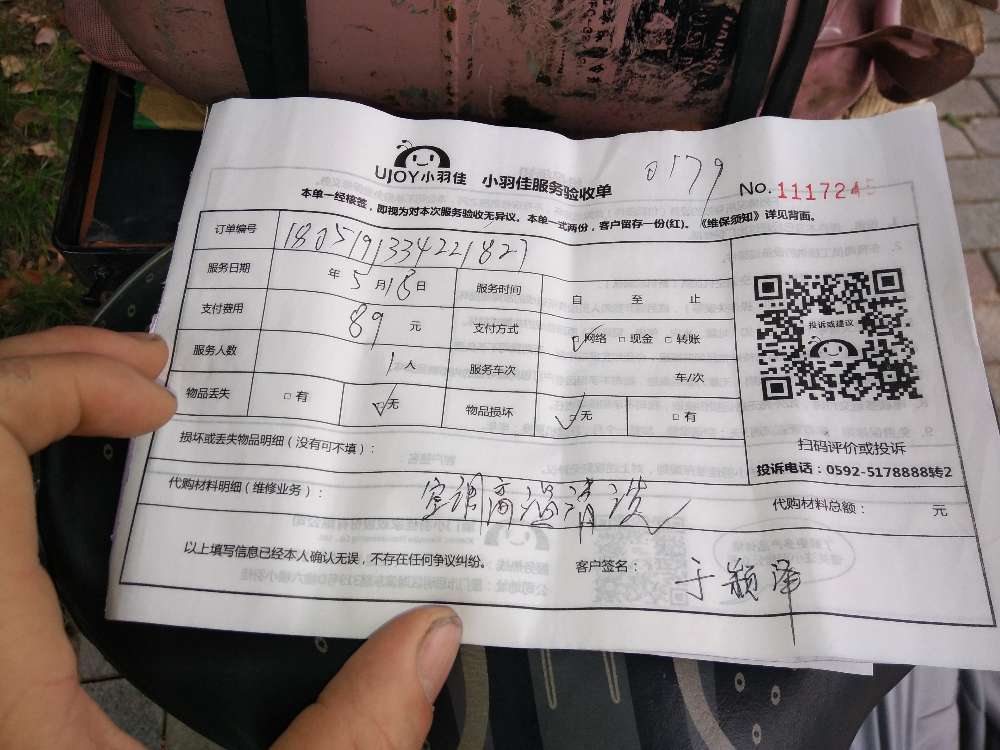 UJOY小羽佳 小羽佳服务验收单 0179 No. 1117245
本单一经核签，即视为对本次服务验收无异议。本单一式两份，客户留存一份(红)。《维保须知》详见背面。
订单编号 1805191334221827
服务日期 年 5 月 18 日 服务时间 自 至 止
支付费用 89 元 支付方式 □网络 □现金 □转账
服务人数 1 人 服务车次 车/次
物品丢失 □有 □无 物品损坏 □无 □有
投诉或建议
扫码评价或投诉
投诉电话：0592-5178888转2
损坏或丢失物品明细（没有可不填）：
代购材料明细（维修业务）： 空调高温清洗 代购材料总额： 元
以上填写信息已经本人确认无误，不存在任何争议纠纷。 客户签名： 于颖泽